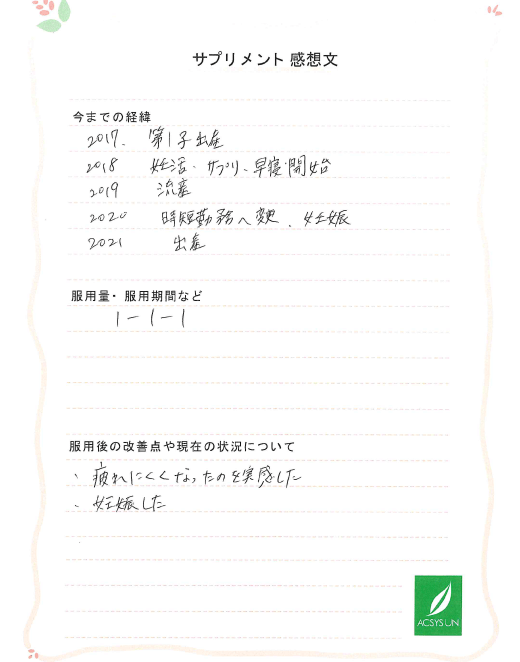 サプリメント 感想文
今までの経緯
2017. 第1子出産
2018 妊活・サプリ、早寝開始
2019 流産
2020 時短勤務へ変更、妊娠
2021 出産
服用量・服用期間など
1-1-1
服用後の改善点や現在の状況について
・疲れにくくなったのを実感した
・妊娠した
ACSYSUN